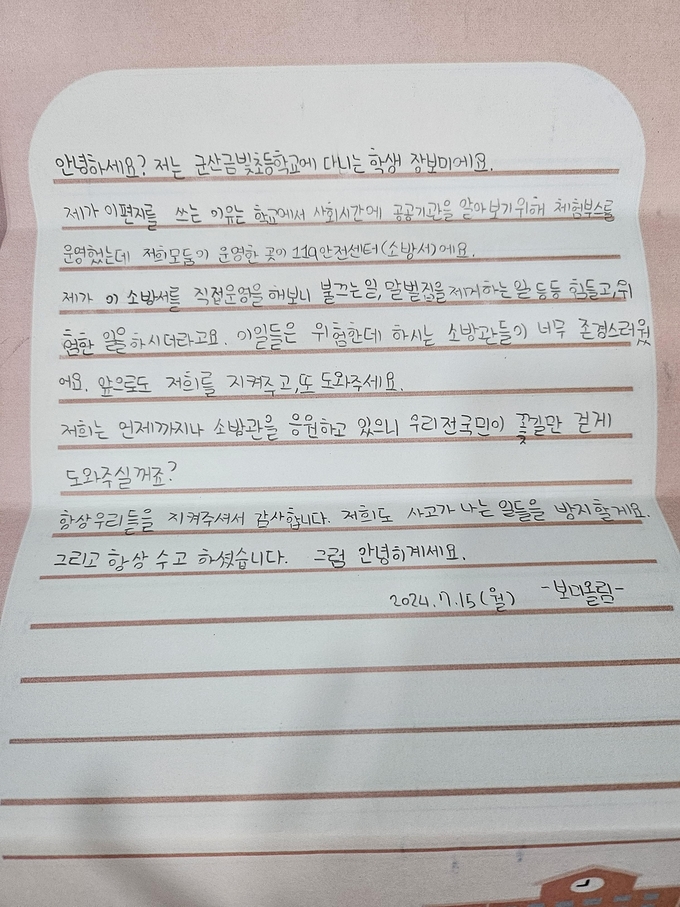 안녕하세요? 저는 군산금빛초등학교에 다니는 학생 장보미에요.
제가 이편지를 쓰는 이유는 학교에서 사회시간에 공공기관을 알아보기위해 체험부스를
운영했는데 저희모둠이 운영한 곳이 119안전센터(소방서)에요.
제가 이 소방서를 직접운영을 해보니 불끄는일, 말벌집을 제거하는일 등등 힘들고, 위
험한 일을 하시더라고요. 이일들은 위험한데 하시는 소방관들이 너무 존경스러웠
어요. 앞으로도 저희를 지켜주고, 또 도와주세요.
저희는 언제까지나 소방관을 응원하고 있으니 우리전국민이 꽃길만 걷게
도와주실꺼죠?
항상우리들을 지켜주셔서 감사합니다. 저희도 사고가 나는 일들을 방지할게요.
그리고 항상 수고 하셨습니다. 그럼 안녕히계세요.
2024.7.15(월) -보미올림-